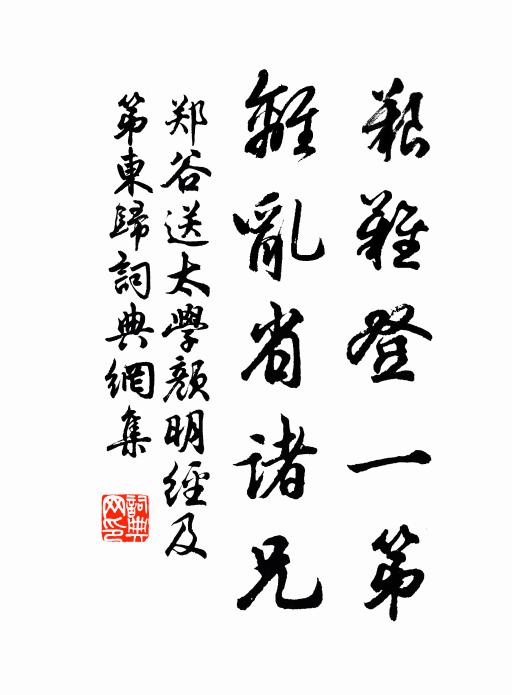 艱難登一第
離亂省諸兄
郑谷送太學顏明經及
第東歸詞典網集
詞典
网印